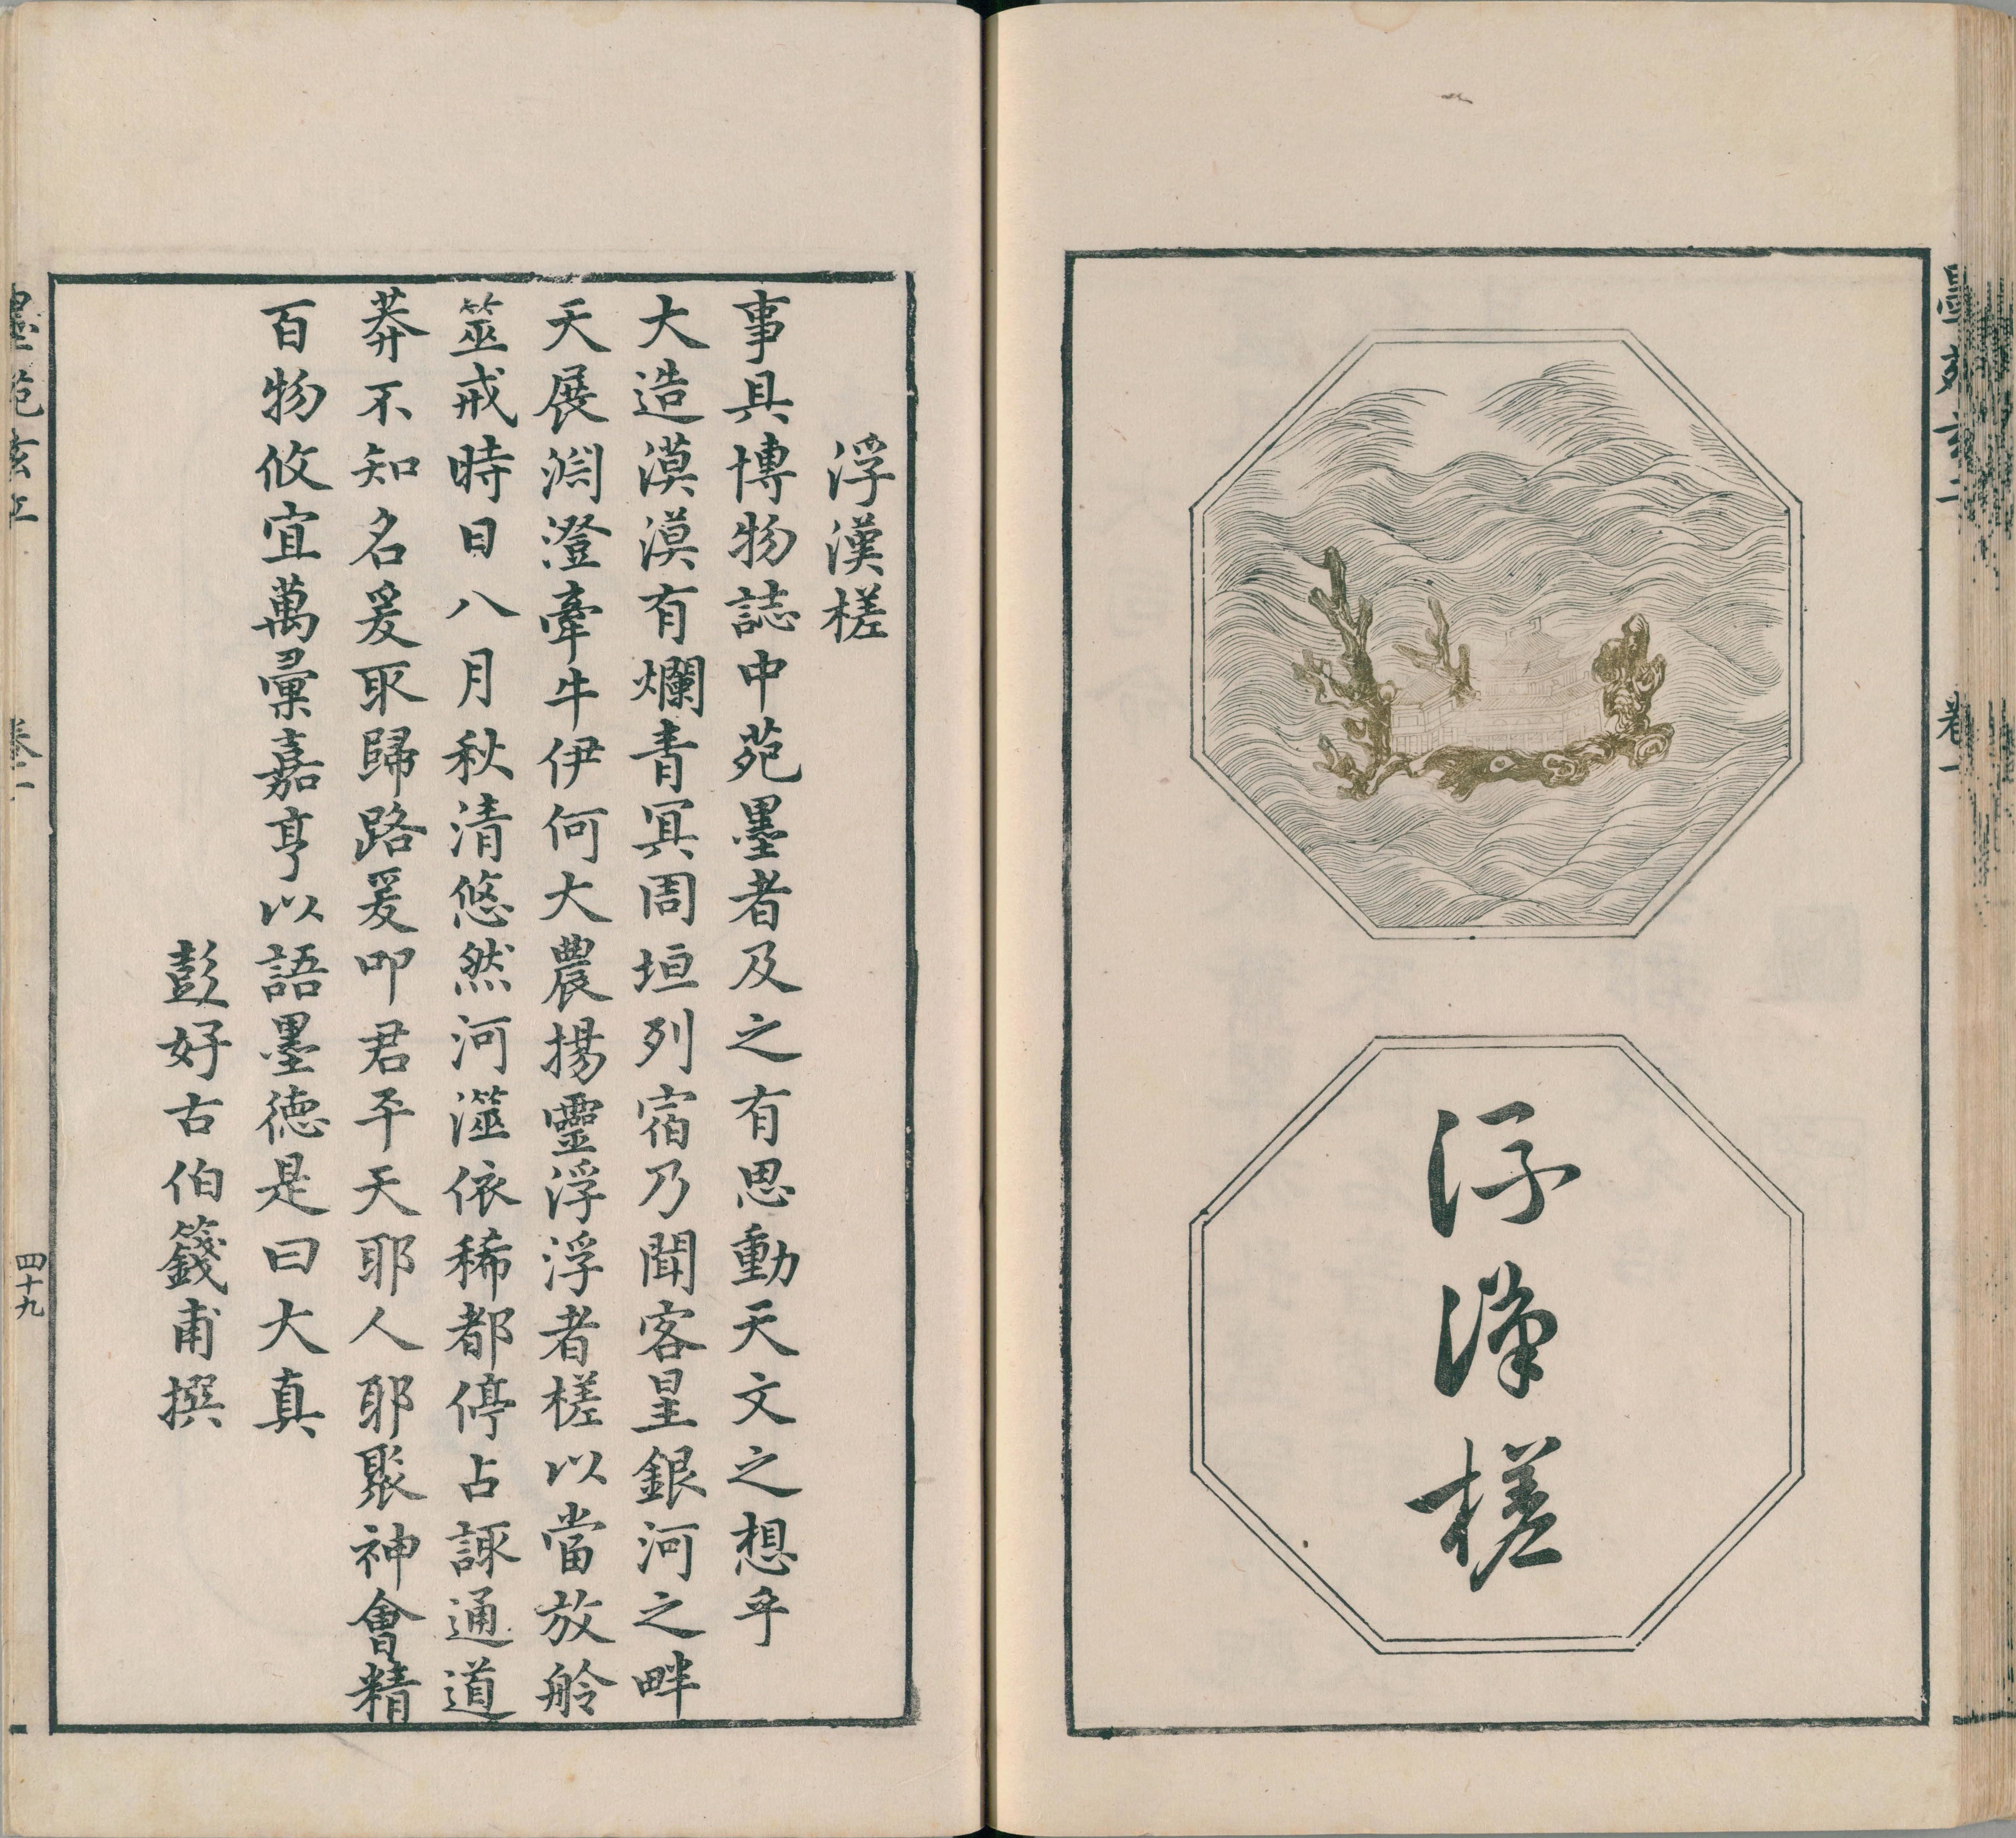 浮漢槎
浮漢槎
事具博物誌中苑墨者及之有思動天文之想乎
大造漠漠有爛青冥周垣列宿乃聞客星銀河之畔
天展淵澄牽牛伊何大農揚靈浮浮者槎以當放舲
筮戒時日八月秋清悠然河澨依稀都停占諏通道
莽不知名爰取歸路爰叩君平天耶人耶聚神會精
百物攸宜萬彙嘉亨以語墨德是曰大真
彭好古伯籛甫撰
墨苑玄工
卷一
四十九